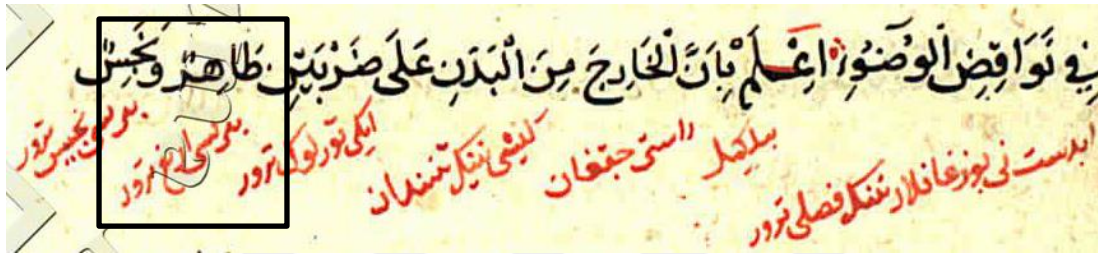 في نَوَاقِضِ الْوُضُوءِ اِعْلَمْ بِاَنَّ الْخَارِجَ مِنَ الْبَدَنِ عَلَى ضَرْبَيْنِ طَاهِرٌ وَنَجِسٌ
ابدست نی بوزغانلار ننگ فصلی ترور بیلکیل راستی چققان کیشی ننگ تنیندان ایکی تورلوک ترور بیرسی اریغ ترور بیرسی نجیس ترور